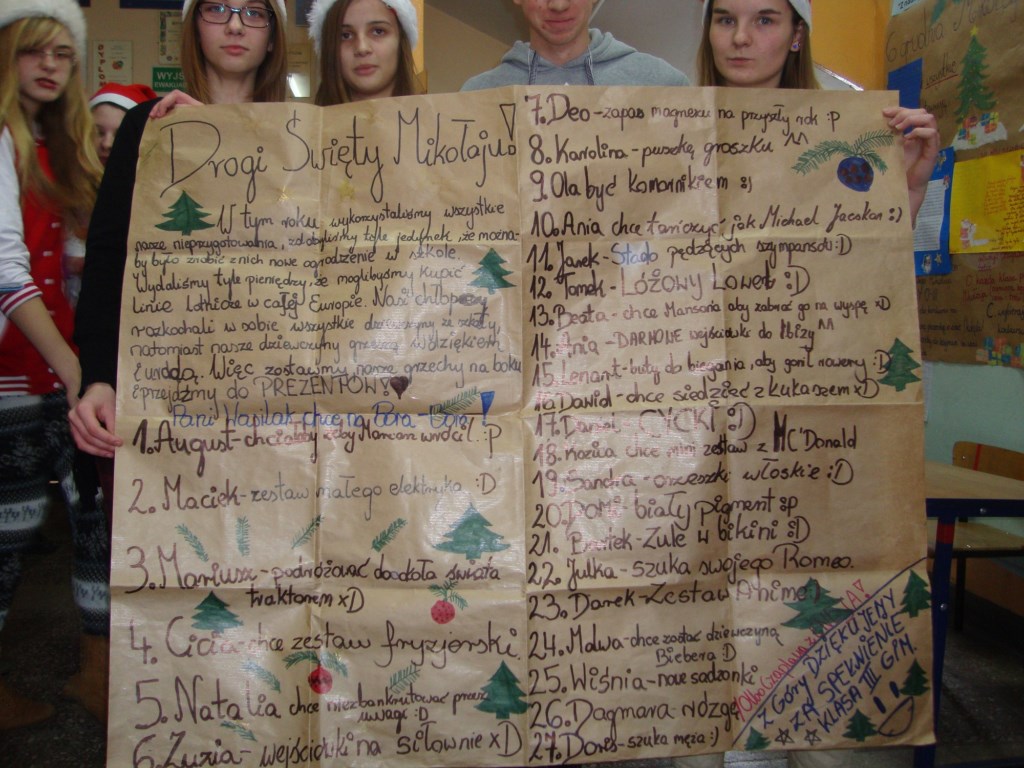 Drogi Święty Mikołaju!
W tym roku wykorzystaliśmy wszystkie
nasze nieprzygotowania, zdobyliśmy tyle jedynek, że można
by było zrobić z nich nowe ogrodzenie w szkole.
Wydaliśmy tyle pieniędzy, że moglibyśmy kupić
linie lotnicze w całej Europie. Nasi chłopcy
rozkochali w sobie wszystkie dziewczyny ze szkoły,
natomiast nasze dziewczyny grzeszą wdziękiem
i urodą. Więc zostawmy nasze grzechy na boku
i przejdźmy do PREZENTÓW!
Pani Wasilak chce na Bora-Bora!
1. August-chciałby żeby Marcin wrócił :P
2. Maciek-zestaw małego elektryka :D
3. Mariusz-podróżować dookoła świata
traktorem xD
4. Cicia-chce zestaw fryzjerski.
5. Natalia chce niezbankrutować przez
uwagi :D
6. Zuzia-wejściówki na siłownie xD
7. Deo-zapas magnezu na przyszły rok :P
8. Karolina-puszkę groszku ^^
9. Ola być komornikiem :)
10. Ania chce tańczyć jak Michael Jackson :)
11. Janek-Stado pędzących szympansów :D
12. Tomek-LÓŻOWY Lowelo :D
13. Beata-chce Mansona aby zabrać go na wyspę xD
14. Ania-DARMOWE wejściówki do Ibizy ^^
15. Lenart-buty do biegania, aby gonił rowery :D
16. Dawid-chce siedzieć z Łukaszem xD
17. CYCKI :D
18. Kozica chce mini zestaw z MC'Donald
19. Sandra-orzeszki włoskie :D
20. Domi-biały pigment :p
21. Bartek-Żule w bikini :D
22. Julka-szuka swojego Romeo.
23. Darek-Zestaw Anime)
24. Malwa-chce zostać dziewczyną
Biebera :D
25. Wiśnia-nowe sadzonki
26. Dagmara rózgę
27. Doris-szuka męża :)
Z GÓRY DZIĘKUJEMY
ZA SPEŁNIENIE
KLASA III GIM.
WYJŚ